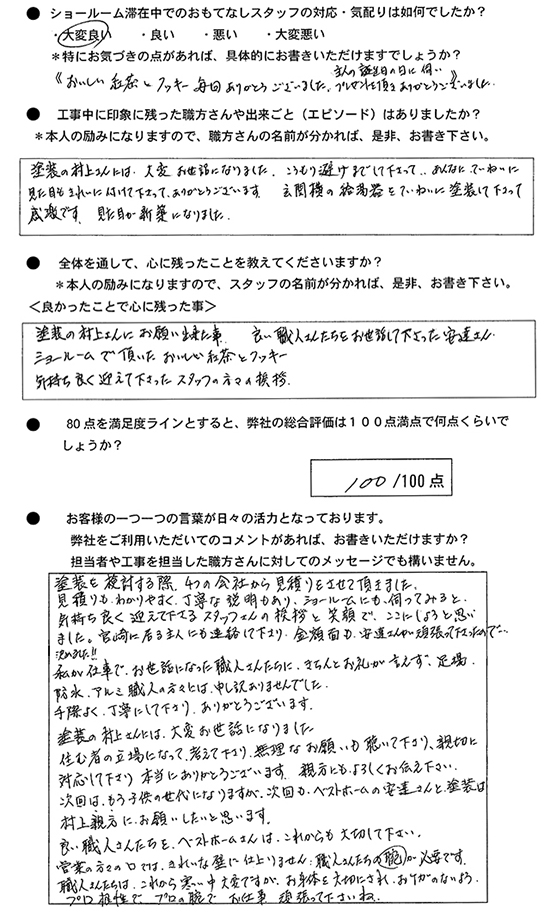 ● ショールーム滞在中でのおもてなしスタッフの対応・気配りは如何でしたか？
・大変良い ・良い ・悪い ・大変悪い
＊特にお気づきの点があれば、具体的にお書きいただけますでしょうか？
《おいしい紅茶とクッキー毎回ありがとうございました。主人の誕生日の日に伺い プレゼントを頂きありがとうございました。》
● 工事中に印象に残った職方さんや出来ごと（エピソード）はありましたか？
＊本人の励みになりますので、職方さんの名前が分かれば、是非、お書き下さい。
塗装の村上さんには、大変お世話になりました。こうもり避けまでして下さって‥あんなにていねいに
見た目もきれいに付けて下さって、ありがとうございます 玄関横の給湯器もていねいに塗装して下さって
感激です。見た目が新築になりました。
● 全体を通して、心に残ったことを教えてくださいますか？
＊本人の励みになりますので、スタッフの名前が分かれば、是非、お書き下さい。
＜良かったことで心に残った事＞
塗装の村上さんにお願い出来た事。良い職人さんたちをお世話して下さった安達さん
ショールームで頂いたおいしい紅茶とクッキー
気持ち良く迎えて下さったスタッフの方々の挨拶.
● 80点を満足度ラインとすると、弊社の総合評価は１００点満点で何点くらいで
しょうか？
100/100点
● お客様の一つ一つの言葉が日々の活力となっております。
弊社をご利用いただいてのコメントがあれば、お書きいただけますか？
担当者や工事を担当した職方さんに対してのメッセージでも構いません。
塗装を検討する際、4つの会社から見積りをさせて頂きました。
見積りも、わかりやすく、丁寧な説明もあり、ショールームにも、伺ってみると、
気持ち良く迎えて下さるスタッフさんの挨拶と笑顔で、ここにしようと思い
ました。宮崎に居る主人にも連絡して下さり、金額面も、安達さんが頑張って下さったので…
決めました!!
私が仕事で、お世話になった職人さんたちに、きちんとお礼が言えず、足場、
防水、アルミ職人の方々には、申し訳ありませんでした。
手際よく、丁寧にして下さり、ありがとうございます。
塗装の村上さんには、大変お世話になりました
住む者の立場になって、考えて下さり、無理なお願いも聴いて下さり、親切に
対応して下さり本当にありがとうございます。親方にもよろしくお伝え下さい。
次回は、もう子供の世代になりますが、次回も、ベストホームの安達さんと、塗装は
村上親方に、お願いしたいと思います。
良い職人さんたちを、ベストホームさんは、これからも大切して下さい。
営業の方々の口では、きれいな壁に仕上りません。職人さんたちの腕が必要です。
職人さんたちは、これから寒い中大変ですが、お身体を大切にされ、おけがのないよう、
プロ根性で プロの腕で お仕事 頑張って下さいね.